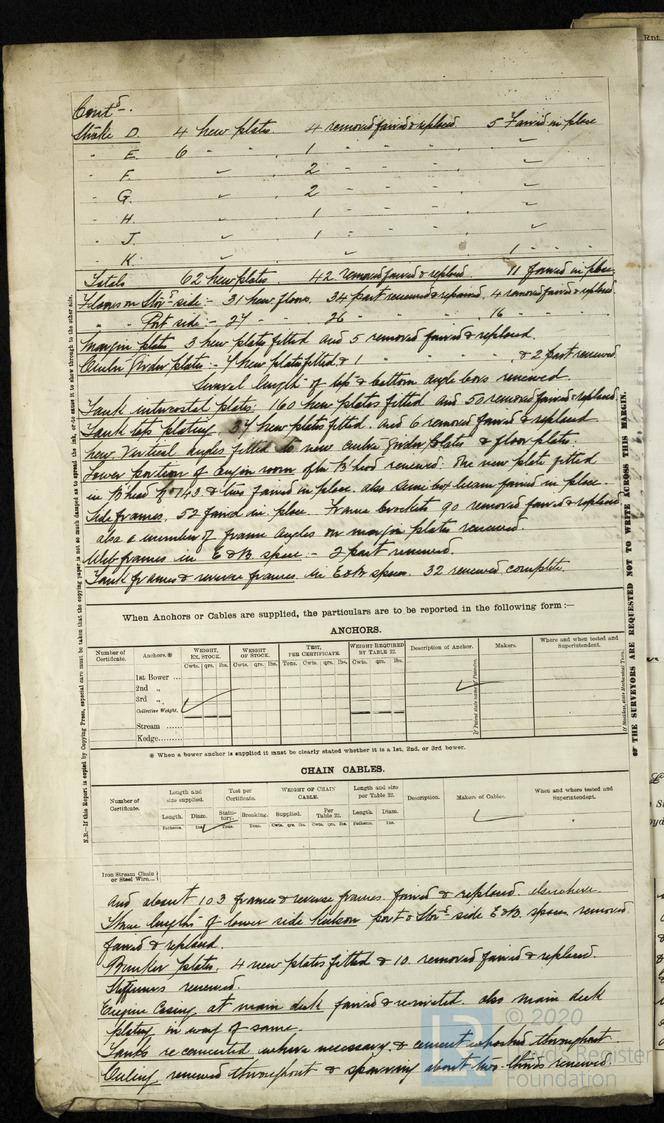 Contd.
Strake D 4 new plates. 4 removed faired & replaced. 5 Faired in place
" E. 6 " " 1 " " "
" F. 2 " " "
" G. 2 " " "
" H. 1 " " "
" J. 1 " " "
" K. 1 " "
Totals 62 New plates 42 removed faired & replaced 11 faired in place
Floors on Stbd side :- 31 new floors. 34 part renewed & repaired. 4 removed faired & replaced.
" " Port side :- 27 " 26 " " 16 "
Margin plate 3 new plates fitted and 5 removed faired & replaced
Center Girder plates :- 7 new plates fitted & 1 " " " & 2 part renewed
Several lengths of top & bottom angle bars renewed.
Tank intercostal plates. 160 new plates fitted and 50 removed faired & replaced.
Tank tops plating 34 new plates fitted. and 6 removed faired & replaced
New Vertical angles fitted to new center girder plates & floor plates.
Lower portion of engine room after B'head renewed. One new plate fitted
in B'head No 43 & two faired in place. also some beam faired in place.
Side frames. 52 faired in place. Frame brackets 90 removed faired & replaced
also a number of frame angles on margin plates renewed.
Web frames in E & B. space :- 2 part renewed.
Tank frames & reverse frames in E & B spaces. 32 renewed complete.
When Anchors or Cables are supplied, the particulars are to be reported in the following form :—
ANCHORS.
Number of Certificate. Anchors.* WEIGHT, EX. STOCK. WEIGHT OF STOCK. TEST, PER CERTIFICATE. WEIGHT REQUIRED BY TABLE 22. Description of Anchor. Makers. Where and when tested and Superintendent.
Cwts. qrs. lbs. Cwts. qrs. lbs. Tons. Cwts. qrs. lbs. Cwts. qrs. lbs.
1st Bower ...
2nd „
3rd „
Collective Weight.
Stream ......
Kedge.........
* When a bower anchor is supplied it must be clearly stated whether it is a 1st, 2nd, or 3rd bower.
CHAIN CABLES.
Number of Certificate. Length and size supplied. Test per Certificate. WEIGHT OF CHAIN CABLE. Length and size per Table 22. Description. Makers of Cables. When and where tested and Superintendent.
Length. Diam. Statutory. Breaking. Supplied. Per Table 22. Length. Diam.
Fathoms. Ins. Tons. Tons. Cwts. qrs. lbs. Cwts. qrs. lbs. Fathoms. Ins.
Iron Stream Chain or Steel Wire...
and about 103 frames & reverse frames faired & replaced elsewhere.
Three lengths of lower side keelson port & Stbd side E & B. spaces removed
faired & replaced.
Bunker plates. 4 new plates fitted & 10 removed faired & replaced.
Stiffeners renewed.
Engine Casing at main deck faired & reriveted. also main deck
plating in way of same.
Tanks recemented where necessary & cement repaired throughout.
Ceiling renewed throughout & sparring about two-thirds renewed.
N.B.—If this Report is copied by Copying Press, especial care must be taken that the copying paper is not so much damped as to spread the ink, or to cause it to show through to the other side.
OF THE SURVEYORS ARE REQUESTED NOT TO WRITE ACROSS THIS MARGIN.
© 2020
Lloyd's Register
Foundation